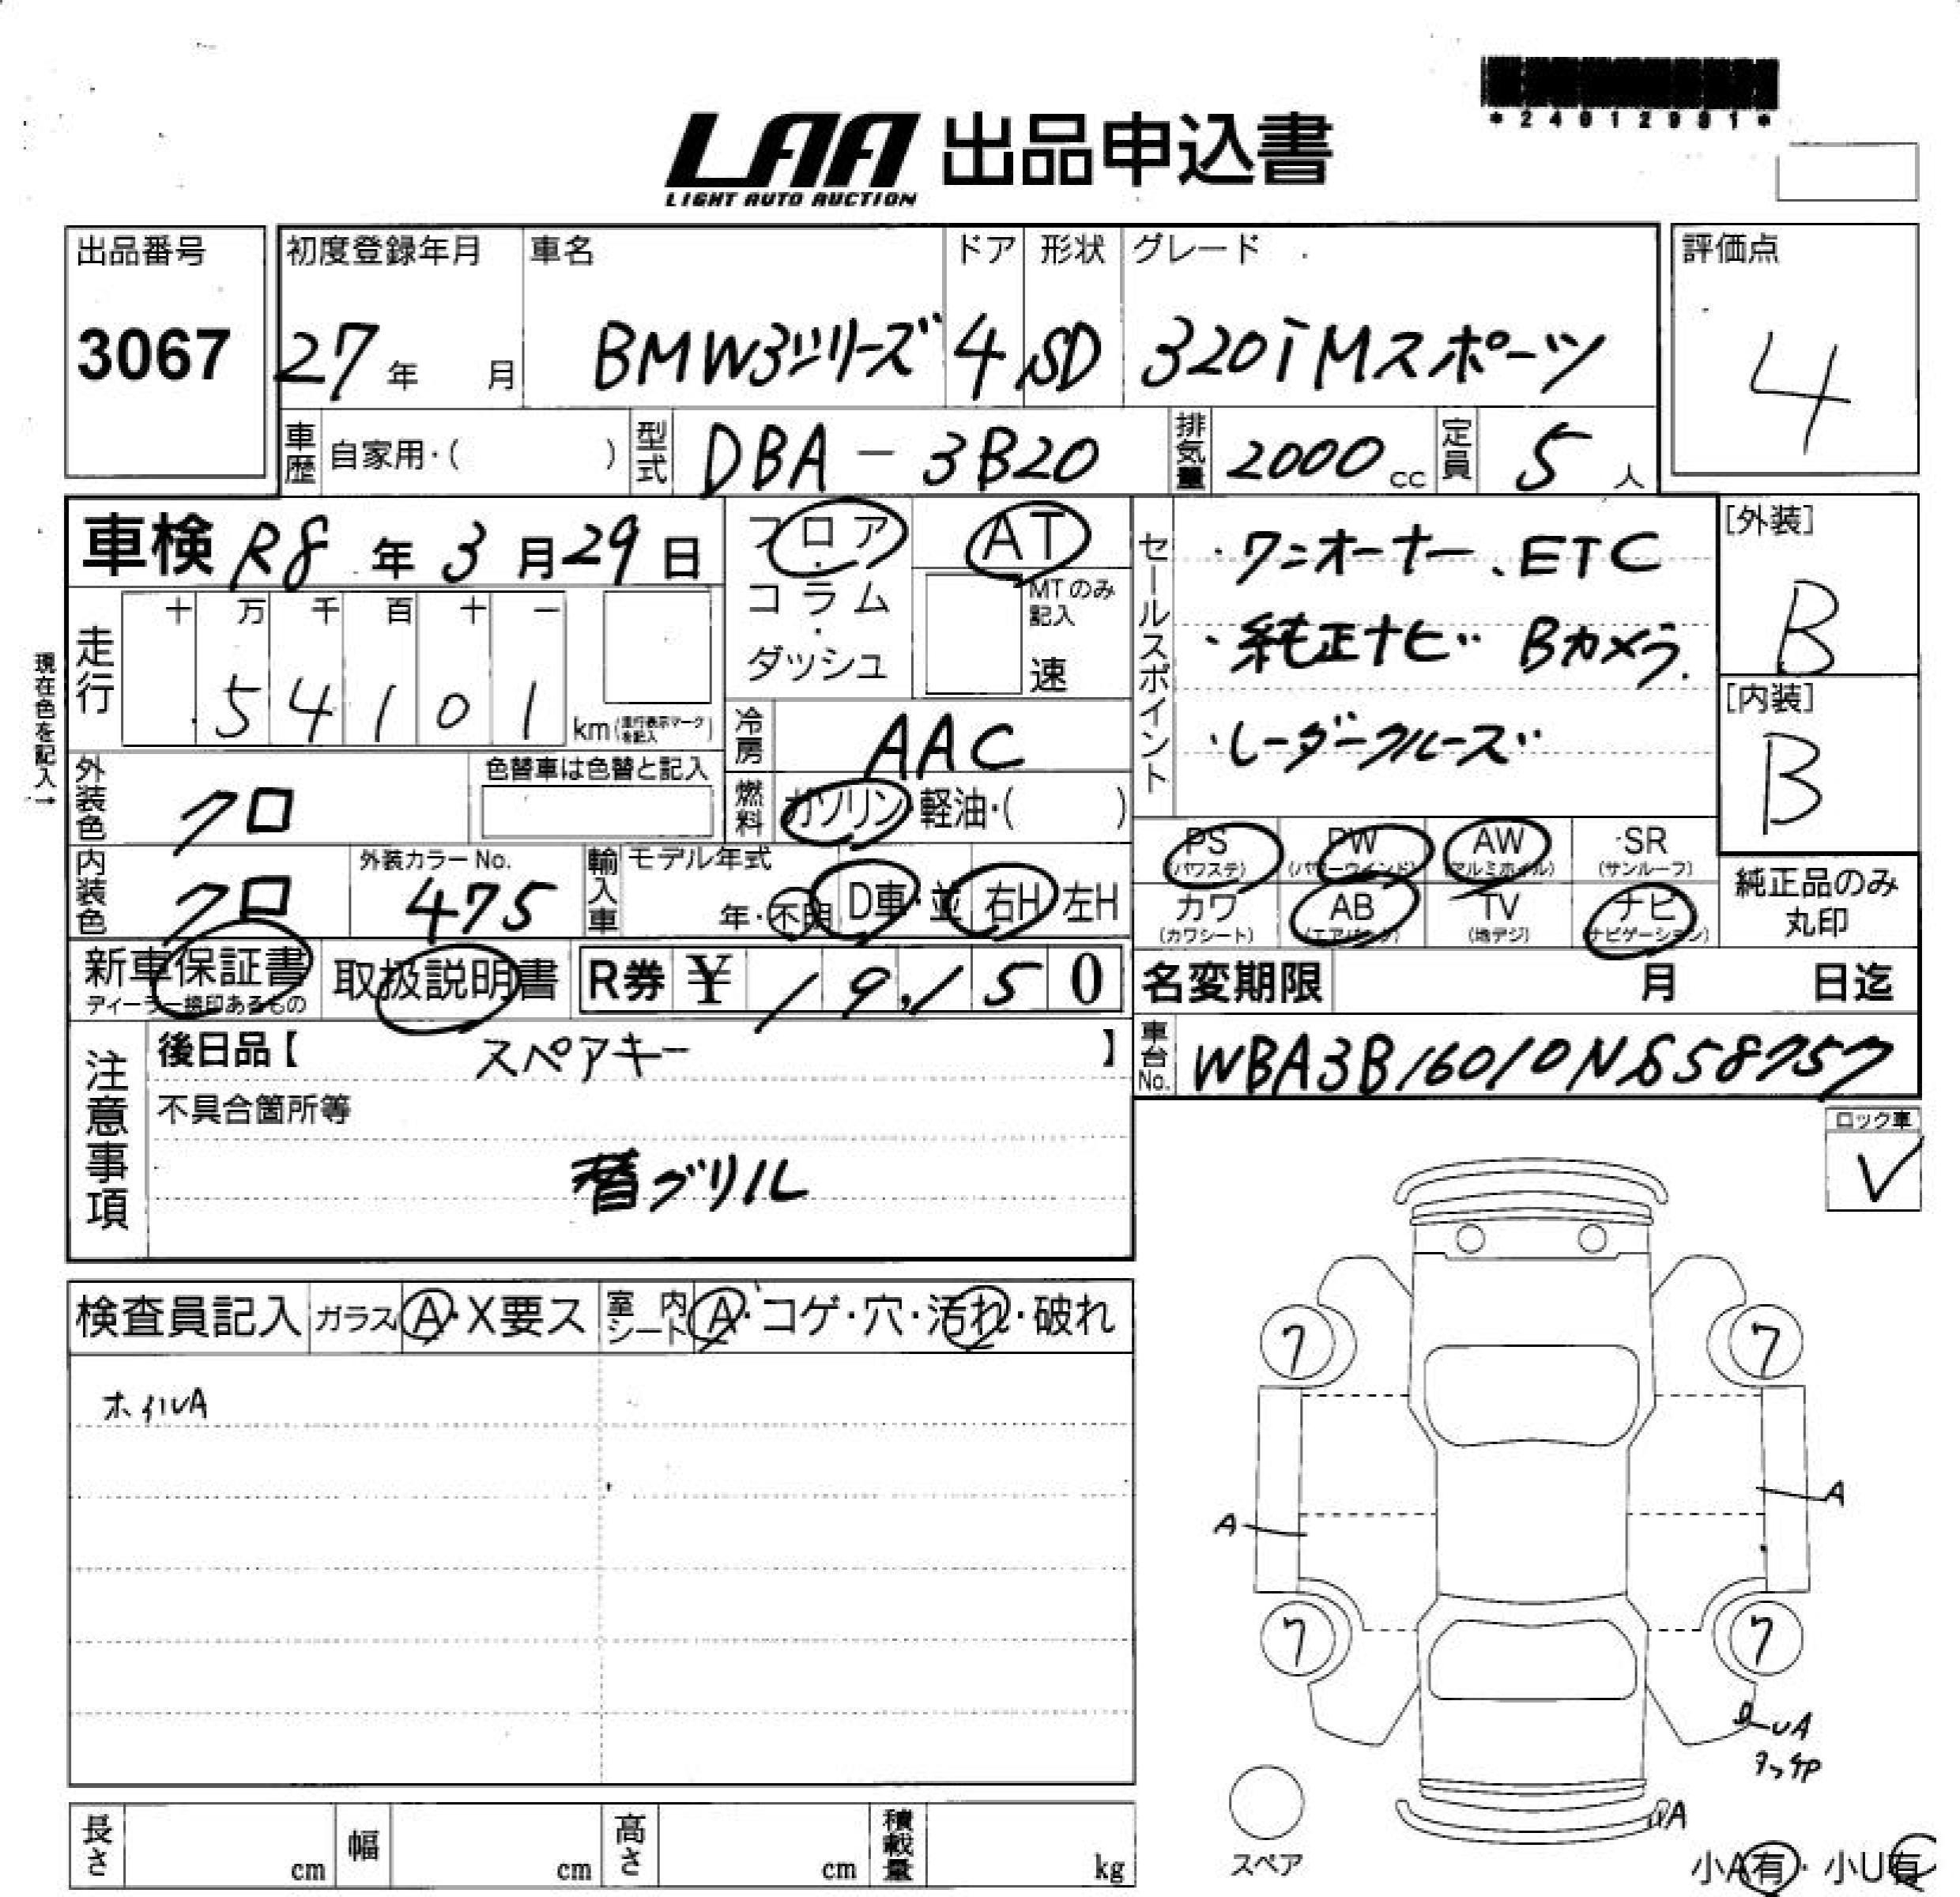 *24012901*
LAA 出品申込書
LIGHT AUTO AUCTION
出品番号 初度登録年月 車名 ドア 形状 グレード 評価点
3067 27年 月 BMW3シリーズ 4 SD 320i Mスポーツ 4
車歴 自家用・( ) 型式 DBA-3B20 排気量 2000cc 定員 5人
車検 R8年3月29日 フロア・コラム・ダッシュ AT MTのみ記入 速
現在色を記入→
走行 十 万 千 百 十 一
5 4 1 0 1 km (走行表示マークを記入)
冷房 AAC
セールスポイント
・ワンオーナー、ETC
・純正ナビ Bカメラ.
・レーダークルーズ
[外装] B
[内装] B
外装色 クロ 色替車は色替と記入 燃料 ガソリン・軽油・( )
内装色 クロ 外装カラーNo. 475 輸入車 モデル年式 年・不明 D車・並 右H 左H
PS (パワステ) PW (パワーウインド) AW (アルミホイル) SR (サンルーフ)
カワ (カワシート) AB (エアバック) TV (地デジ) ナビ (ナビゲーション) 純正品のみ丸印
新車保証書 ディーラー捺印あるもの 取扱説明書 R券 ¥ 19,150 名変期限 月 日迄
注意事項 後日品【 スペアキー 】 車台No. WBA3B16010NS58757
不具合箇所等 ロック車 ✓
替グリル
検査員記入 ガラス A・X要ス 室内シート A・コゲ・穴・汚れ・破れ
ホイルA
7 7
A A
7 7
UA
タッチP
A
スペア
小A有・小U有
長さ cm 幅 cm 高さ cm 積載量 kg